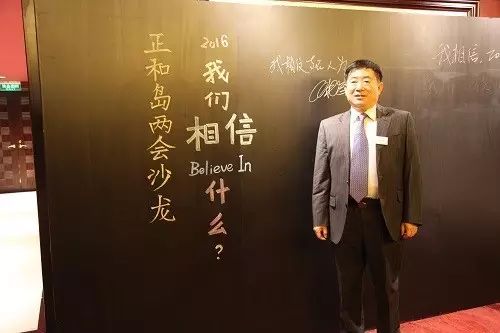 正和岛两会沙龙
2016
我们
相信
Believe In
什么?
我相信